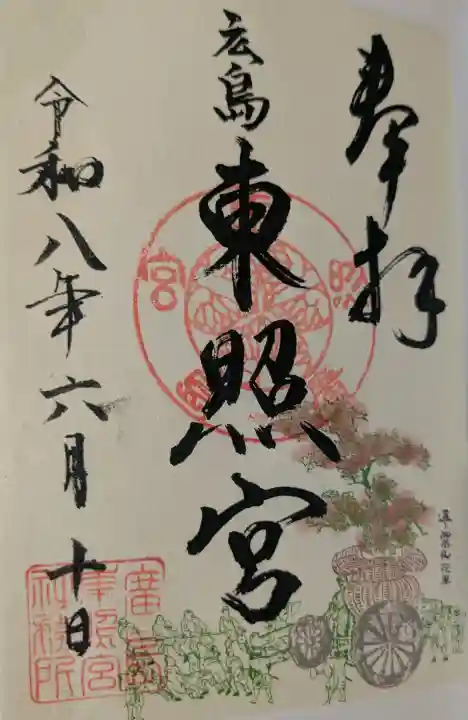 奉拝
広島
東照宮
令和八年六月十日
廣島
東照宮
社務所